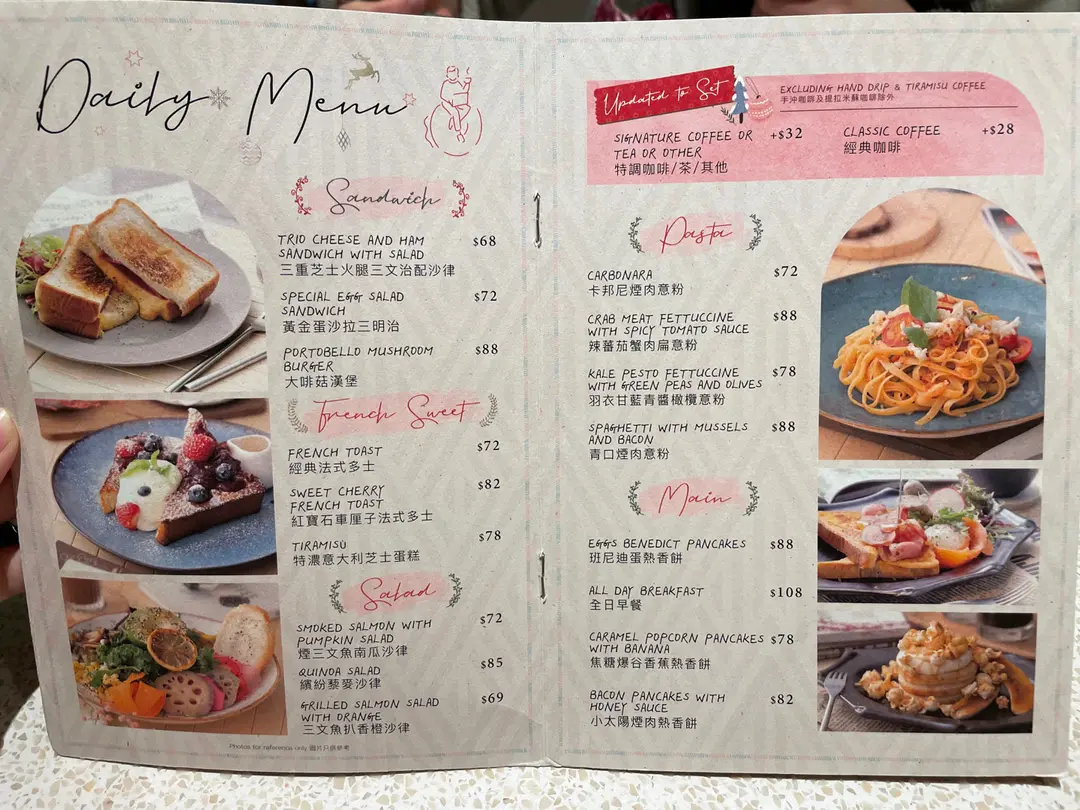 Daily Menu
Sandwich
TRIO CHEESE AND HAM $68
SANDWICH WITH SALAD
三重芝士火腿三文治配沙律
SPECIAL EGG SALAD $72
SANDWICH
黃金蛋沙拉三明治
PORTOBELLO MUSHROOM $88
BURGER
大啡菇漢堡
French Sweet
FRENCH TOAST $72
經典法式多士
SWEET CHERRY $82
FRENCH TOAST
紅寶石車厘子法式多士
TIRAMISÙ $78
特濃意大利芝士蛋糕
Salad
SMOKED SALMON WITH $72
PUMPKIN SALAD
煙三文魚南瓜沙律
QUINOA SALAD $85
繽紛藜麥沙律
GRILLED SALMON SALAD $69
WITH ORANGE
三文魚扒香橙沙律
Photos for reference only 圖片只供參考
Updated to Set
EXCLUDING HAND DRIP & TIRAMISU COFFEE
手沖咖啡及提拉米蘇咖啡除外
SIGNATURE COFFEE OR +$32
TEA OR OTHER
特調咖啡/茶/其他
CLASSIC COFFEE +$28
經典咖啡
Pasta
CARBONARA $72
卡邦尼煙肉意粉
CRAB MEAT FETTUCCINE $88
WITH SPICY TOMATO SAUCE
辣蕃茄蟹肉扁意粉
KALE PESTO FETTUCCINE $78
WITH GREEN PEAS AND OLIVES
羽衣甘藍青醬橄欖意粉
SPAGHETTI WITH MUSSELS $88
AND BACON
青口煙肉意粉
Main
EGGS BENEDICT PANCAKES $88
班尼迪蛋熱香餅
ALL DAY BREAKFAST $108
全日早餐
CARAMEL POPCORN PANCAKES $78
WITH BANANA
焦糖爆谷香蕉熱香餅
BACON PANCAKES WITH $82
HONEY SAUCE
小太陽煙肉熱香餅